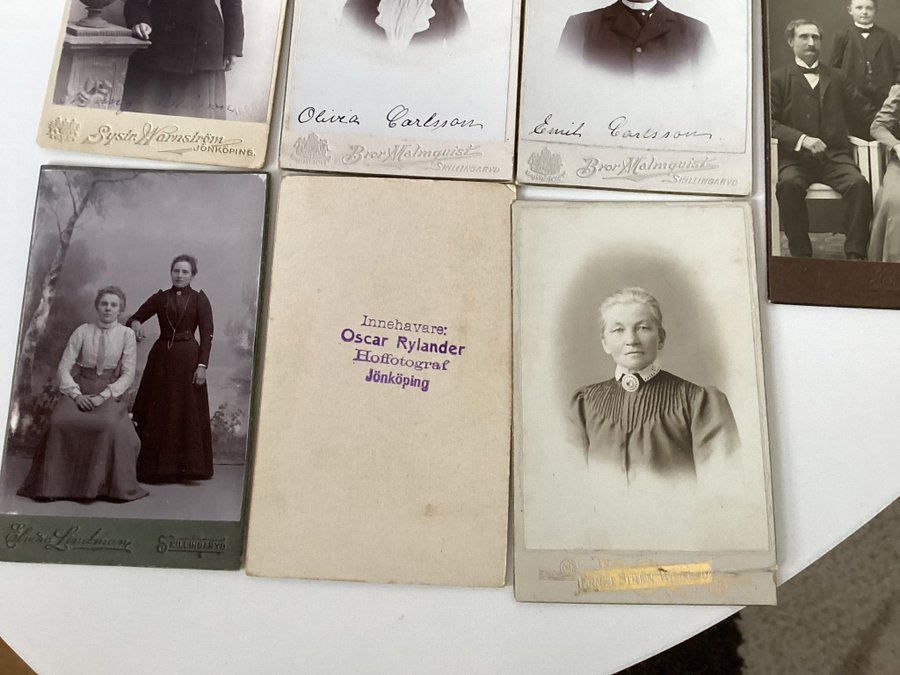 Systr. Warnström
JÖNKÖPING.
Olivia Carlsson
Bror Malmquist
SKILLINGARYD
Emil Carlsson
Bror Malmquist
SKILLINGARYD
Innehavare:
Oscar Rylander
Hoffotograf
Jönköping
Lindman
SKILLINGARYD